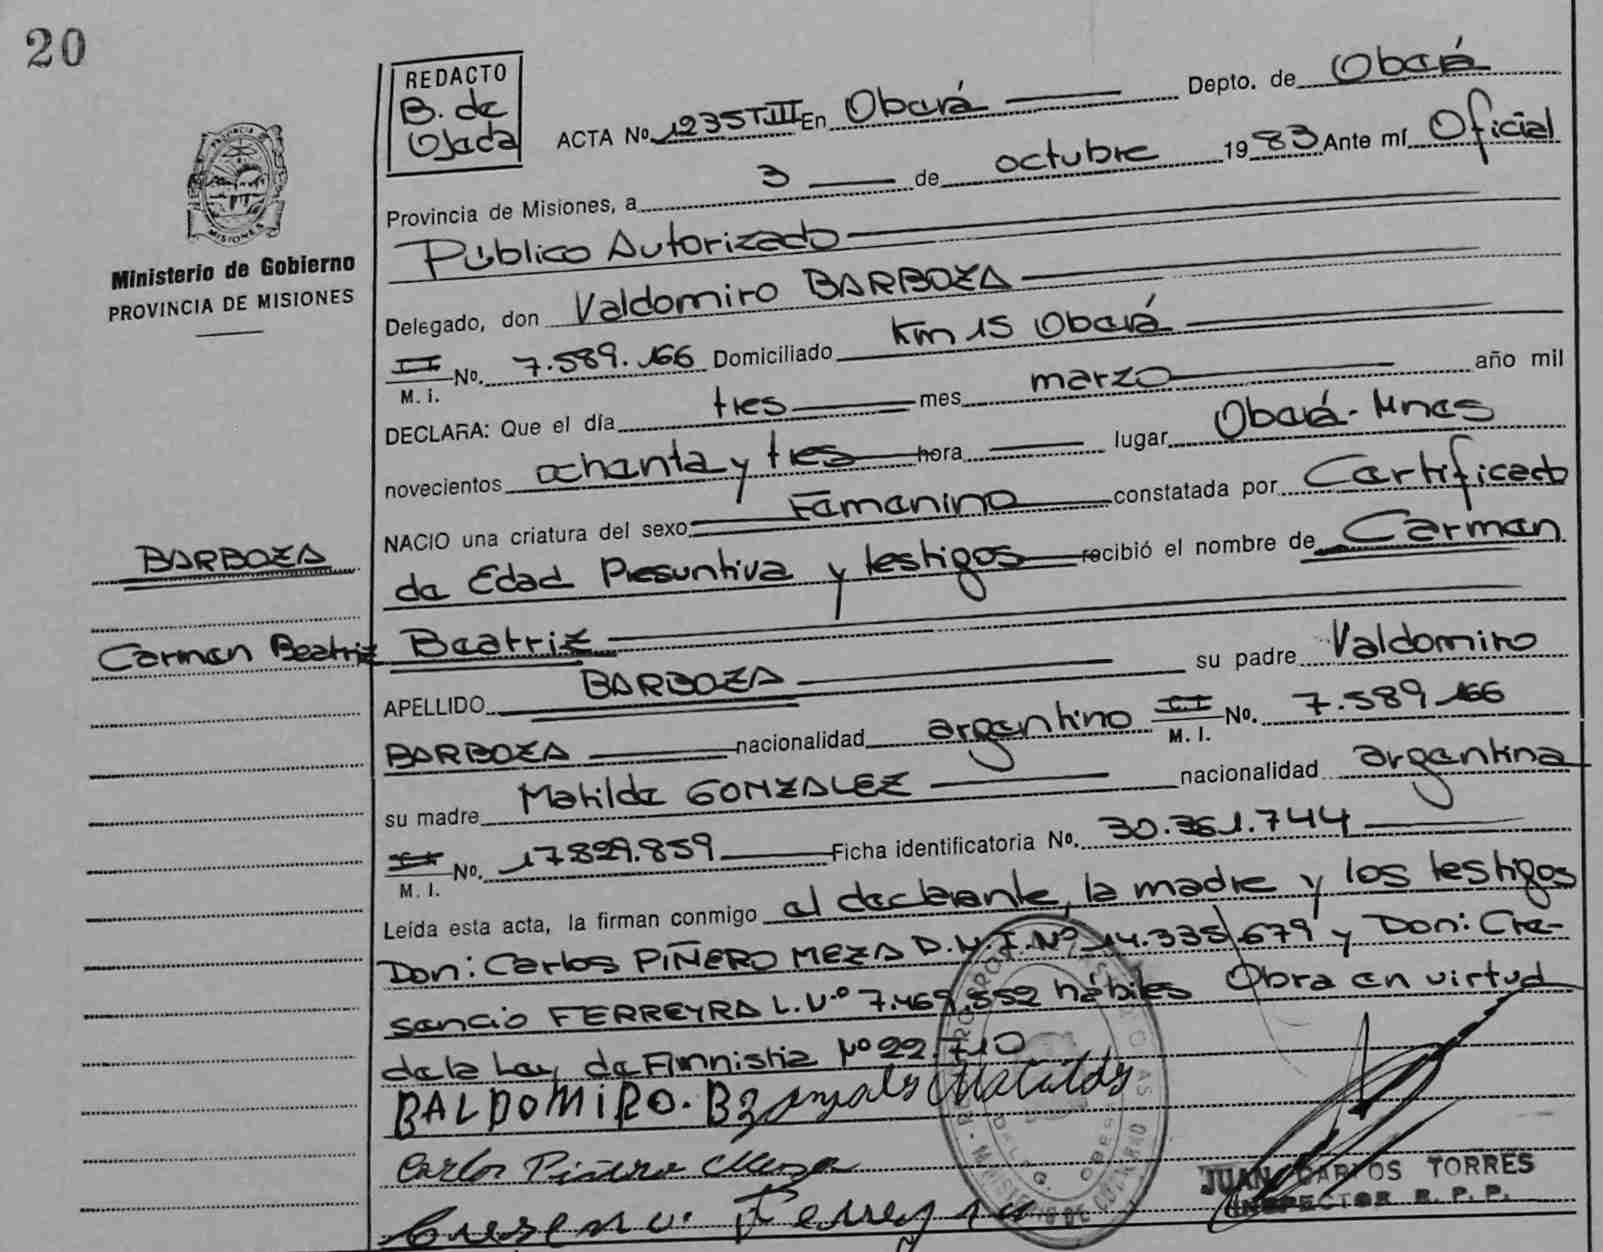 20
REDACTO
B. de
Ojeda
ACTA No. 1235 T III En Oberá Depto. de Oberá
Provincia de Misiones, a 3 de octubre 1983 Ante mí Oficial
Público Autorizado
Ministerio de Gobierno
PROVINCIA DE MISIONES
Delegado, don Valdomiro BARBOZA
No. 7.589.166 Domiciliado Km 15 Oberá
M. i.
DECLARA: Que el día tres mes marzo año mil
novecientos ochenta y tres hora lugar Oberá - Mnes
NACIO una criatura del sexo Femenino constatada por Certificado
BARBOZA
de Edad Presuntiva y testigos recibió el nombre de Carmen
Carmen Beatriz
Beatriz
APELLIDO BARBOZA su padre Valdomiro
BARBOZA nacionalidad argentino No. 7.589.166
M. I.
su madre Matilde GONZALEZ nacionalidad argentina
No. 17.829.859 Ficha identificatoria No. 30.361.744
M. I.
Leída esta acta, la firman conmigo el declarante, la madre y los testigos
Don: Carlos PIÑERO MEZA D.N.I. Nº 14.335.679 y Don: Cre-
sencio FERREYRA L. Nº 7.469.552 hábiles Obra en virtud
de la Ley de Amnistia Nº 22.710
BALDOMIRO. B Matilde
Carlos Piñero Meza
Cresenc. Ferreyra
JUAN CARLOS TORRES
INSPECTOR R. P. P.